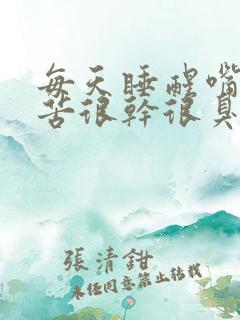 每天睡醒嘴
苦很幹很臭
張清鉗
未經同意禁止轉載